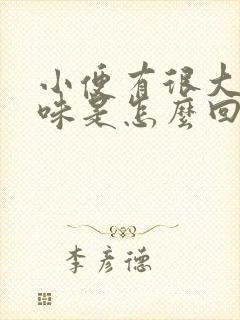 小便有很大
味是怎麼回
李彦德